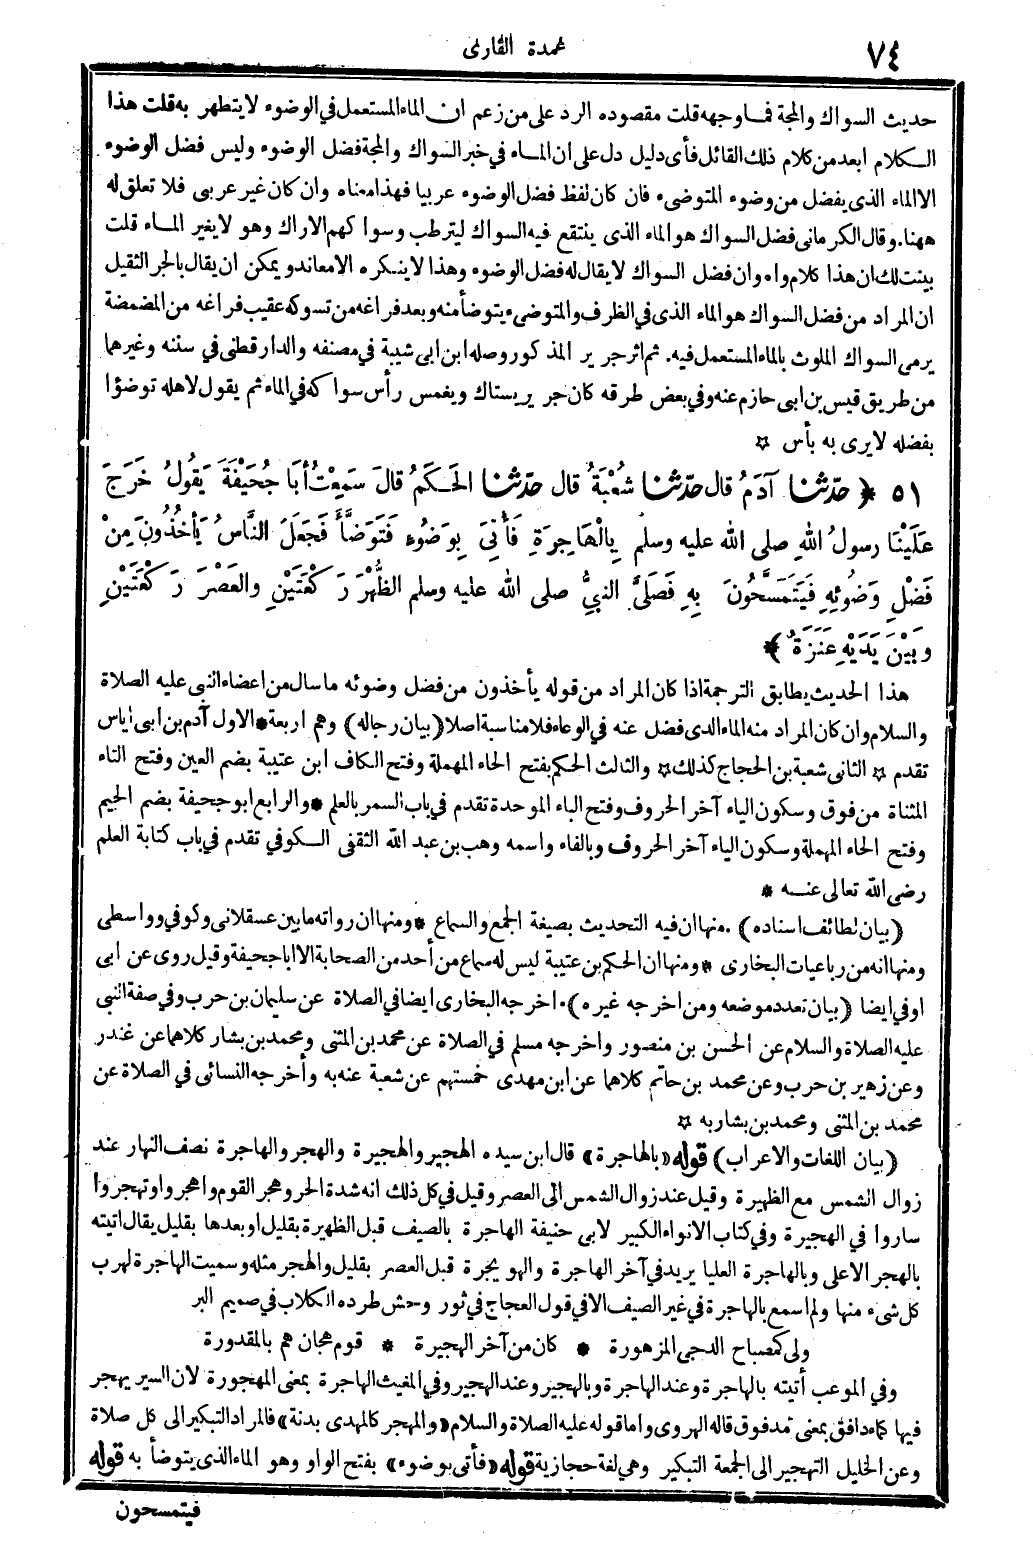 ٧٤
عمدة القارى
حديث السواك والمجة فما وجهه قلت مقصوده الرد على من زعم ان الماء المستعمل في الوضوء لا يتطهر به قلت هذا
الكلام ابعد من كلام ذلك القائل فأى دليل دل على ان الماء في خبر السواك والمجة فضل الوضوء وليس فضل الوضوء
الا الماء الذى يفضل من وضوء المتوضىء فان كان لفظ فضل الوضوء عربيا فهذا معناه وان كان غير عربى فلا تعلق له
ههنا. وقال الكرمانى فضل السواك هو الماء الذى ينتقع فيه السواك ليترطب وسواكهم الاراك وهو لا يغير الماء قلت
بينت لك ان هذا كلام واه وان فضل السواك لا يقال له فضل الوضوء وهذا لا ينكره الا معاند ويمكن ان يقال بالجر الثقيل
ان المراد من فضل السواك هو الماء الذى في الظرف والمتوضىء يتوضأ منه وبعد فراغه من تسوكه عقيب فراغه من المضمضة
يرمى السواك الملوث بالماء المستعمل فيه. ثم اثر جرير المذكور وصله ابن ابى شيبة في مصنفه والدارقطنى في سننه وغيرهما
من طريق قيس بن ابى حازم عنه وفي بعض طرقه كان جرير يستاك ويغمس رأس سواكه في الماء ثم يقول لاهله توضؤا
بفضله لا يرى به بأس ☆
٥١ ﴿ حَدَّثنا آدَمُ قال حدّثنا شُعْبَةُ قال حدّثنا الحَكَمُ قالَ سَمِعْتُ أبَا جُحَيْفَةَ يَقُولُ خَرَجَ
عَلَيْنَا رسولُ اللهِ صلى الله عليه وسلم بِالْهَاجِرَةِ فَأُتِىَ بِوَضُوءٍ فَتَوَضَّأَ فَجَعَلَ النَّاسُ يَأْخُذُونَ مِنْ
فَضْلِ وَضُوئِهِ فَيَتَمَسَّحُونَ بِهِ فَصَلَّى النبيُّ صلى الله عليه وسلم الظُّهْرَ رَكْعَتَيْنِ والعَصْرَ رَكْعَتَيْنِ
وبَيْنَ يَدَيْهِ عَنَزَةٌ ﴾
هذا الحديث يطابق الترجمة اذا كان المراد من قوله يأخذون من فضل وضوئه ما سال من اعضاء النبى عليه الصلاة
والسلام وان كان المراد منه الماء الذى فضل عنه في الوعاء فلا مناسبة اصلا (بيان رجاله) وهم اربعة * الاول آدم بن ابى اياس
تقدم ☆ الثانى شعبة بن الحجاج كذلك ☆ والثالث الحكم بفتح الحاء المهملة وفتح الكاف ابن عتيبة بضم العين وفتح التاء
المثناة من فوق وسكون الياء آخر الحروف وفتح الباء الموحدة تقدم في باب السمر بالعلم * والرابع ابو جحيفة بضم الجيم
وفتح الحاء المهملة وسكون الياء آخر الحروف وبالفاء واسمه وهب بن عبد الله الثقفى الكوفي تقدم في باب كتابة العلم
رضى الله تعالى عنه *
(بيان لطائف اسناده) . منها ان فيه التحديث بصيغة الجمع والسماع * ومنها ان رواته ما بين عسقلانى وكوفي وواسطى
ومنها انه من رباعيات البخارى * ومنها ان الحكم بن عتيبة ليس له سماع من أحد من الصحابة الا ابا جحيفة وقيل روى عن ابى
اوفي ايضا (بيان تعدد موضعه ومن اخرجه غيره) . اخرجه البخارى ايضا في الصلاة عن سليمان بن حرب وفي صفة النبى
عليه الصلاة والسلام عن الحسن بن منصور واخرجه مسلم في الصلاة عن محمد بن المثنى ومحمد بن بشار كلاهما عن غندر
وعن زهير بن حرب وعن محمد بن حاتم كلاهما عن ابن مهدى خمستهم عن شعبة عنه به وأخرجه النسائى في الصلاة عن
محمد بن المثنى ومحمد بن بشار به ☆
(بيان اللغات والاعراب) قوله «بالهاجرة» قال ابن سيده الهجير والهجيرة والهجر والهاجرة نصف النهار عند
زوال الشمس مع الظهيرة وقيل عند زوال الشمس الى العصر وقيل في كل ذلك انه شدة الحر وهجر القوم واهجروا وتهجروا
ساروا في الهجيرة وفي كتاب الانواء الكبير لابى حنيفة الهاجرة بالصيف قبل الظهيرة بقليل او بعدها بقليل يقال اتيته
بالهجر الاعلى وبالهاجرة العليا يريد في آخر الهاجرة والهويجرة قبل العصر بقليل والهجر مثله وسميت الهاجرة لهرب
كل شىء منها ولم اسمع بالهاجرة في غير الصيف الا في قول العجاج في ثور وحش طرده الكلاب في صميم البر
ولى كمصباح الدجى المزهورة * كان من آخر الهجيرة * قوم هجان هم بالمقدورة
وفي الموعب أتيته بالهاجرة وعند الهاجرة وبالهجير وعند الهجير وفي المغيث الهاجرة بمعنى المهجورة لان السير يهجر
فيها كماء دافق بمعنى مدفوق قاله الهروى واما قوله عليه الصلاة والسلام «والمهجر كالمهدى بدنة» فالمراد التبكير الى كل صلاة
وعن الخليل التهجير الى الجمعة التبكير وهي لغة حجازية قوله «فأتى بوضوء» بفتح الواو وهو الماء الذى يتوضأ به قوله
فيتمسحون